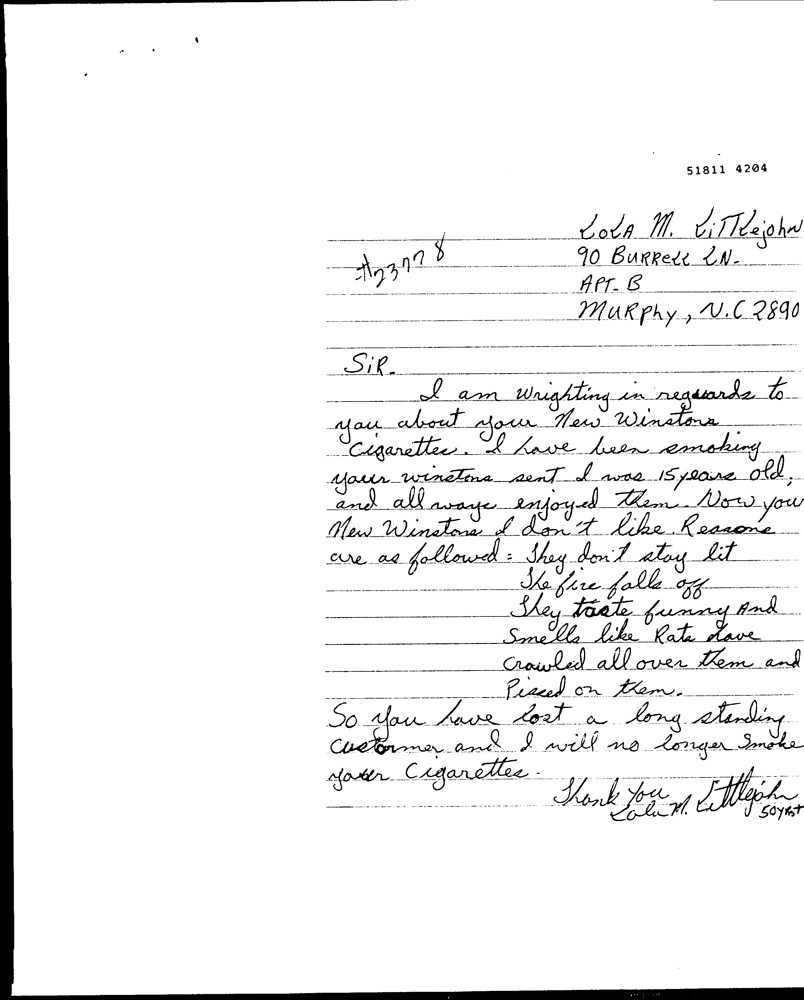 51811 4204
LOLA M. LiTTLejohn
#23778
90 BURRELL LN.
APT. B
MURPhy, N.C 2890
SiR.
I am wrighting in reguards to
you about your New Winstons
Cigarettes. I have been smoking
your winstons sent I was 15 years old,
and all ways enjoyed them. Now you
New Winstons I don't like. Reasons
are as followed = They don't stay lit
The fire falls off
They taste funny And
Smells like Rats have
Crawled all over them and
Pissed on them.
So you have lost a long standing
Custormer and I will no longer Smoke
your Cigarettes.
Thank You
Lola M. Littlejohn
50yrs+